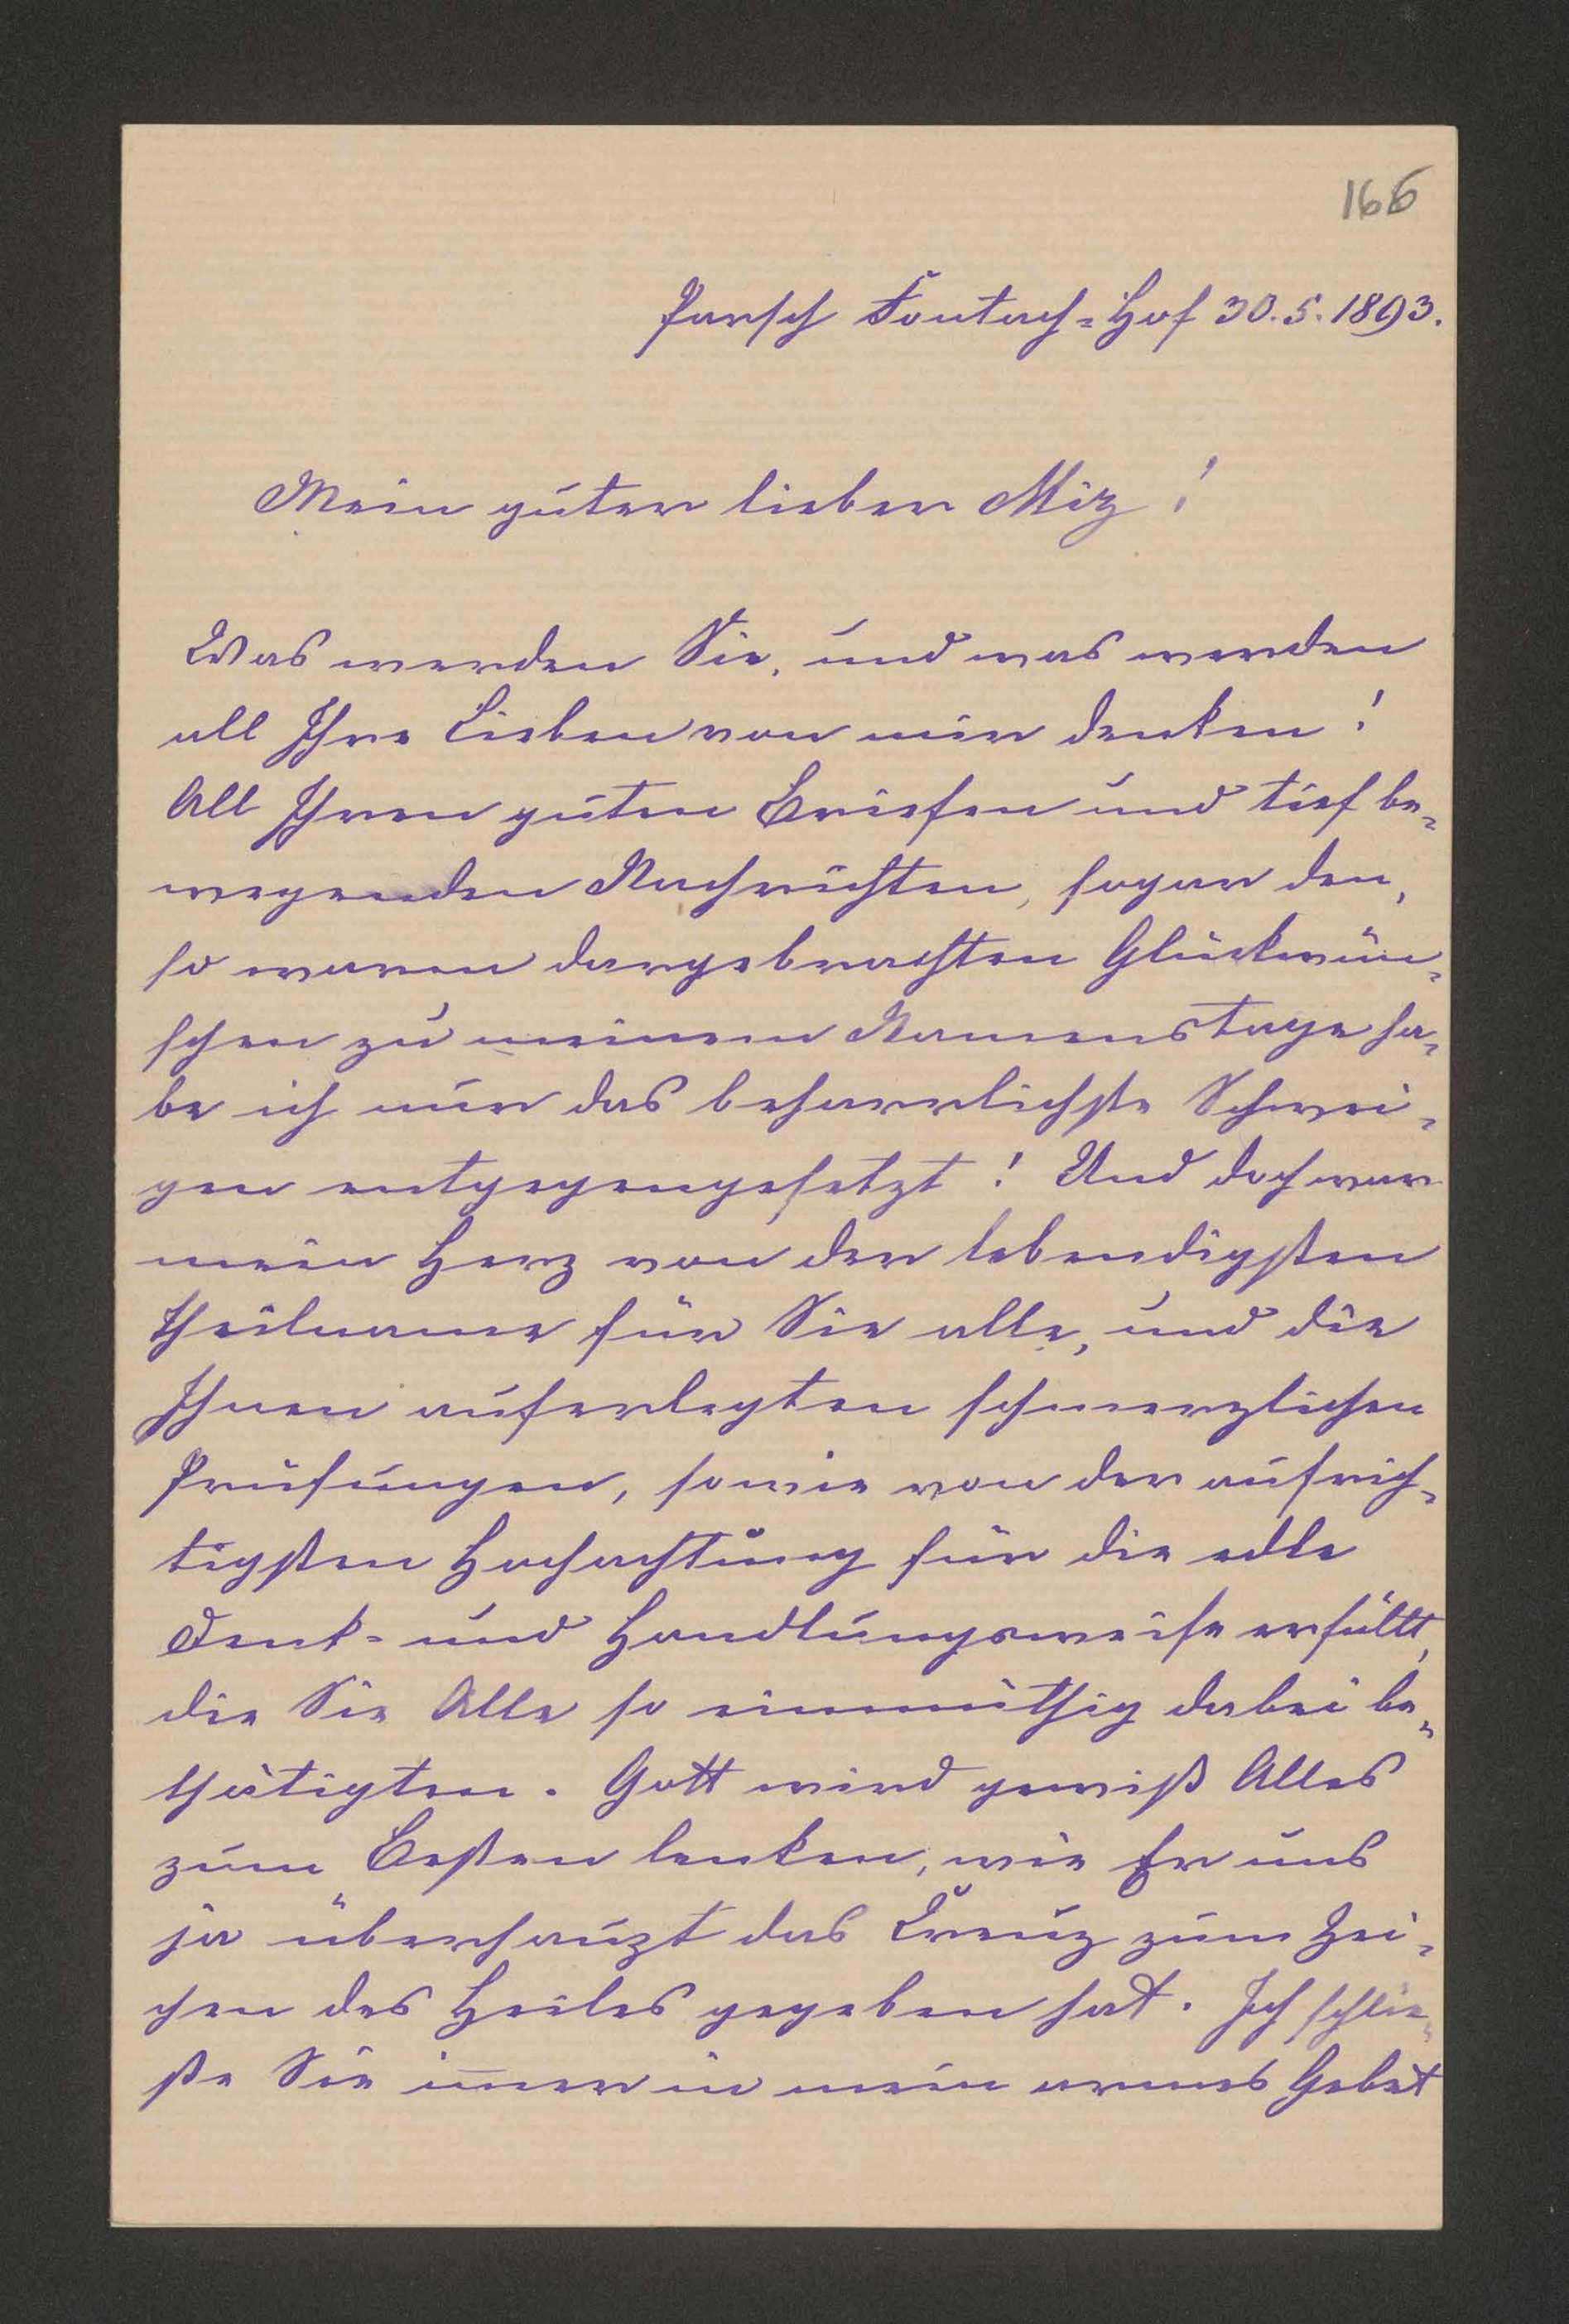 166
Parsch Fontach-Hof 30.5.1893.
Mein guter lieber Miz!
Was werden Sie, und was werden
all Ihre Lieben von mir denken!
All Ihren guten Briefen und tief be-
wegenden Nachrichten, sogar den,
so warm dargebrachten Glückwün-
schen zu meinem Namenstage ha-
be ich nur das beharrlichste Schwei-
gen entgegengesetzt! Und doch war
mein Herz von der lebendigsten
Theilname für Sie alle, und die
Ihnen auferlegten schmerzlichen
Prüfungen, sowie von der aufrich-
tigsten Hochachtung für die edle
Denk- und Handlungsweise erfüllt,
die Sie Alle so einmüthig dabei be-
thätigten. Gott wird gewiß Alles
zum Besten lenken, wie Er uns
ja überhaupt das Creuz zum Zei-
chen des Heiles gegeben hat. Ich schlie-
ße Sie im̅er in mein armes Gebet